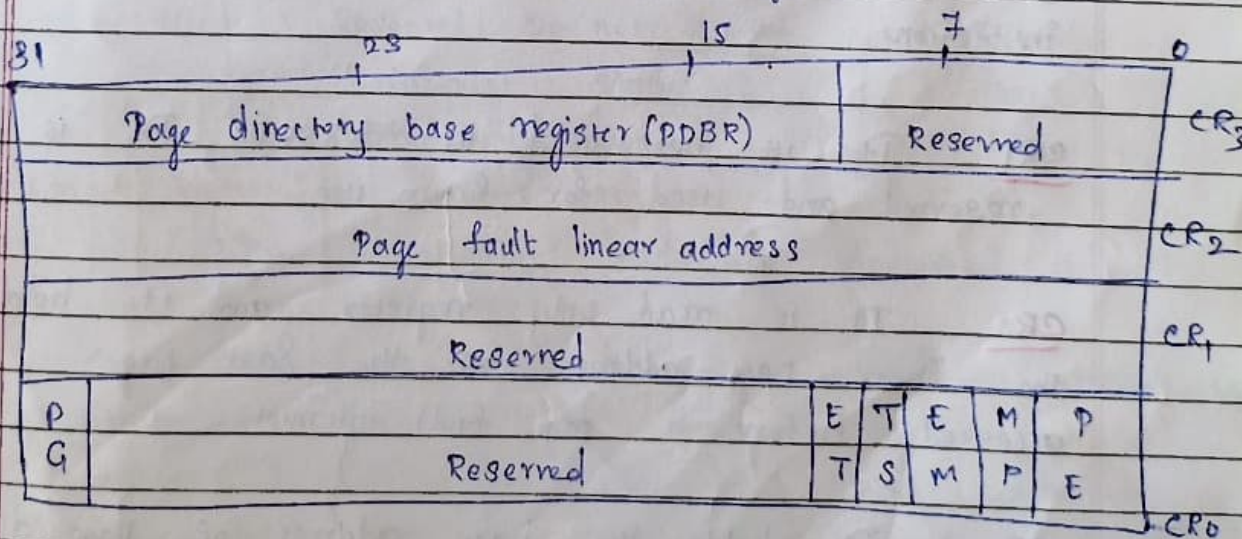 31 23 15 7 0
Page directory base register (PDBR) Reserved CR3
Page fault linear address CR2
Reserved CR1
P E T E M P
G Reserved T S M P E
CR0